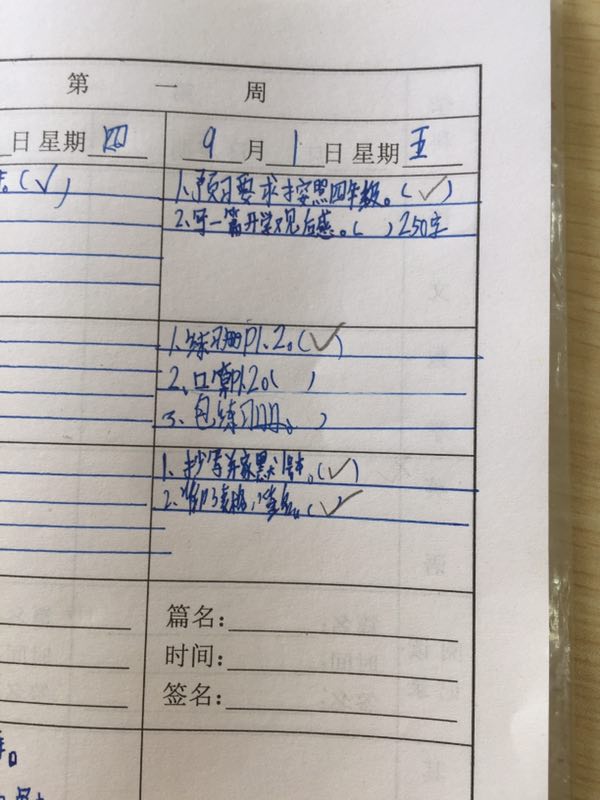 第一周
日 星期 四
9月1日 星期 五
。(✓)
1、预习要求才按照四年级。(✓)
2、写一篇开学见后感。( )250字
1、练习册P1.2。(✓)
2、口算P1.2。( )
3、包练习册。)
1、抄写并家默1本。(✓)
2、(✓)
篇名:
时间:
签名: